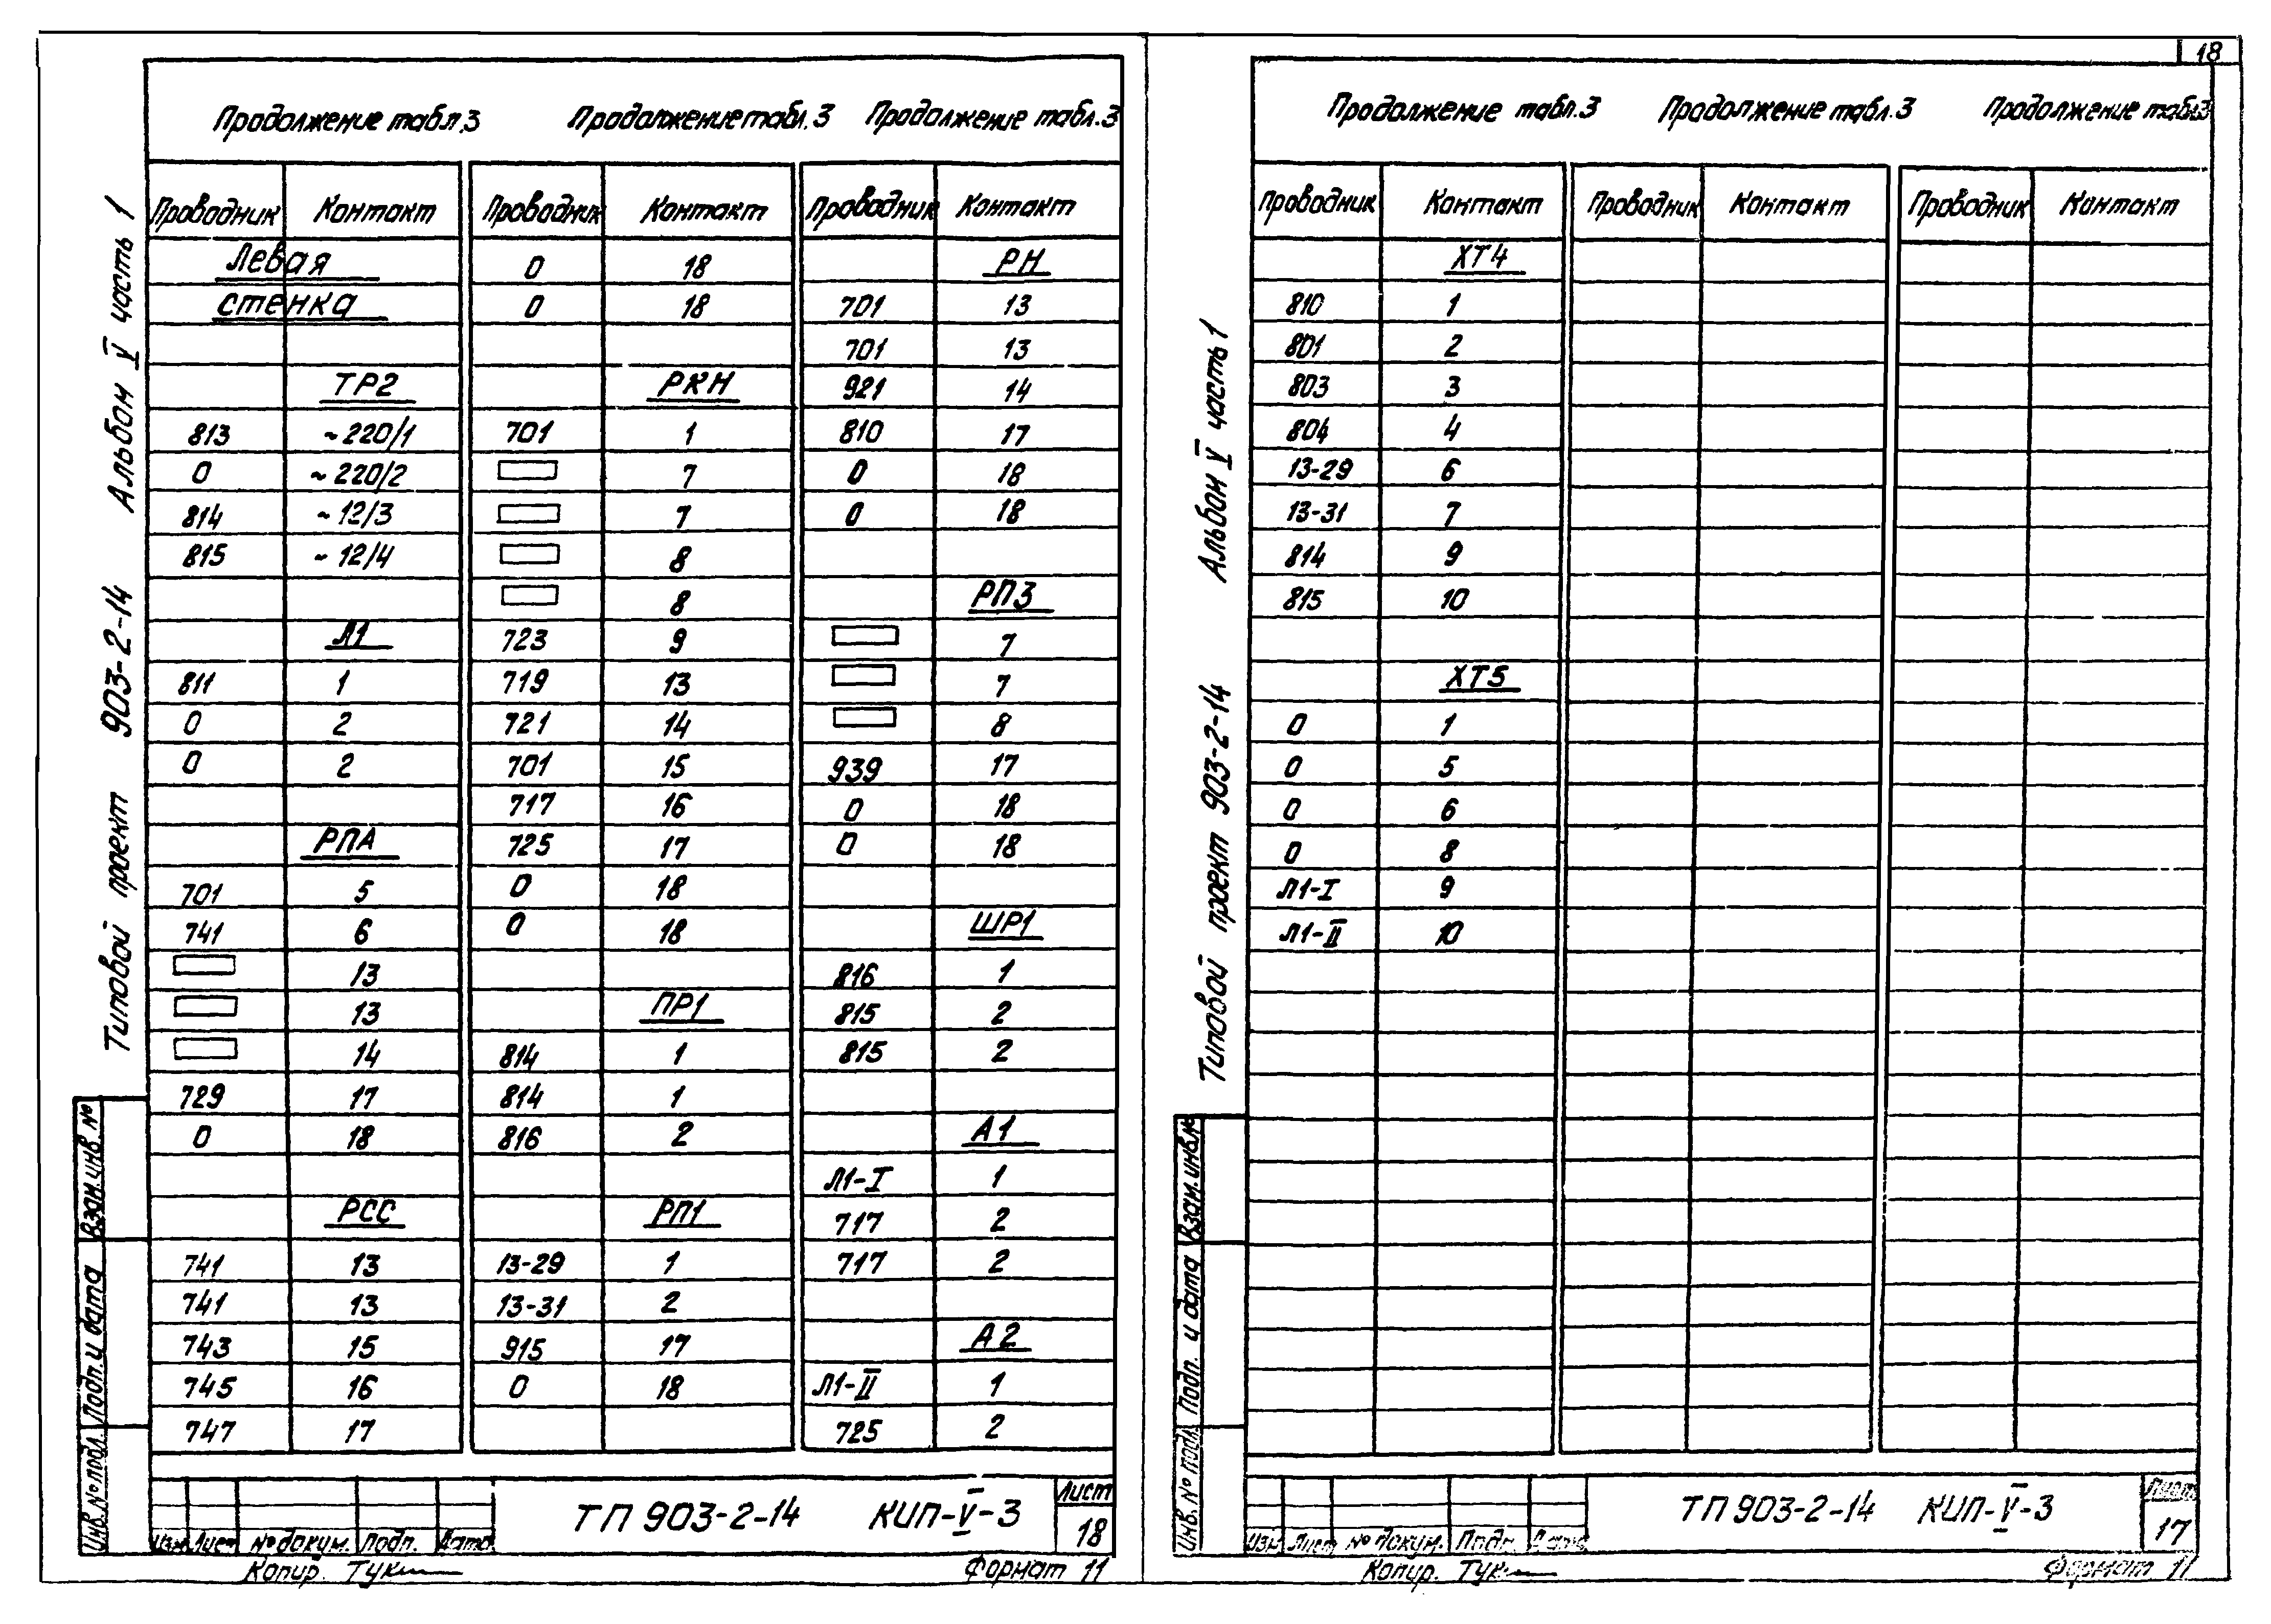 18
Типовой проект 903-2-14 Альбом V часть 1
Продолжение табл.3
Проводник Контакт
Левая
стенка
ТР2
813 ~220/1
0 ~220/2
814 ~12/3
815 ~12/4
Л1
811 1
0 2
0 2
РПА
701 5
741 6
13
13
14
729 17
0 18
РСС
741 13
741 13
743 15
745 16
747 17
Продолжение табл.3
Проводник Контакт
0 18
0 18
РКН
701 1
7
7
8
8
723 9
719 13
721 14
701 15
717 16
725 17
0 18
0 18
ПР1
814 1
814 1
816 2
РП1
13-29 1
13-31 2
915 17
0 18
Продолжение табл.3
Проводник Контакт
РН
701 13
701 13
921 14
810 17
0 18
0 18
РП3
7
7
8
939 17
0 18
0 18
ШР1
816 1
815 2
815 2
А1
Л1-I 1
717 2
717 2
А2
Л1-II 1
725 2
Взам.инв.№
Подп.и дата
Инв.№подл.
Изм Лист №докум. Подп. Дата
ТП 903-2-14 КИП-V-3
Лист
18
Копир. Тук
Формат 11
Типовой проект 903-2-14 Альбом V часть 1
Продолжение табл.3
Проводник Контакт
ХТ4
810 1
801 2
803 3
804 4
13-29 6
13-31 7
814 9
815 10
ХТ5
0 1
0 5
0 6
0 8
Л1-I 9
Л1-II 10
Продолжение табл.3
Проводник Контакт
Продолжение табл.3
Проводник Контакт
Взам.инв.№
Подп. и дата
Инв.№ подл.
Изм Лист № докум. Подп. Дата
ТП 903-2-14 КИП-V-3
Лист
17
Копир. Тук
Формат 11